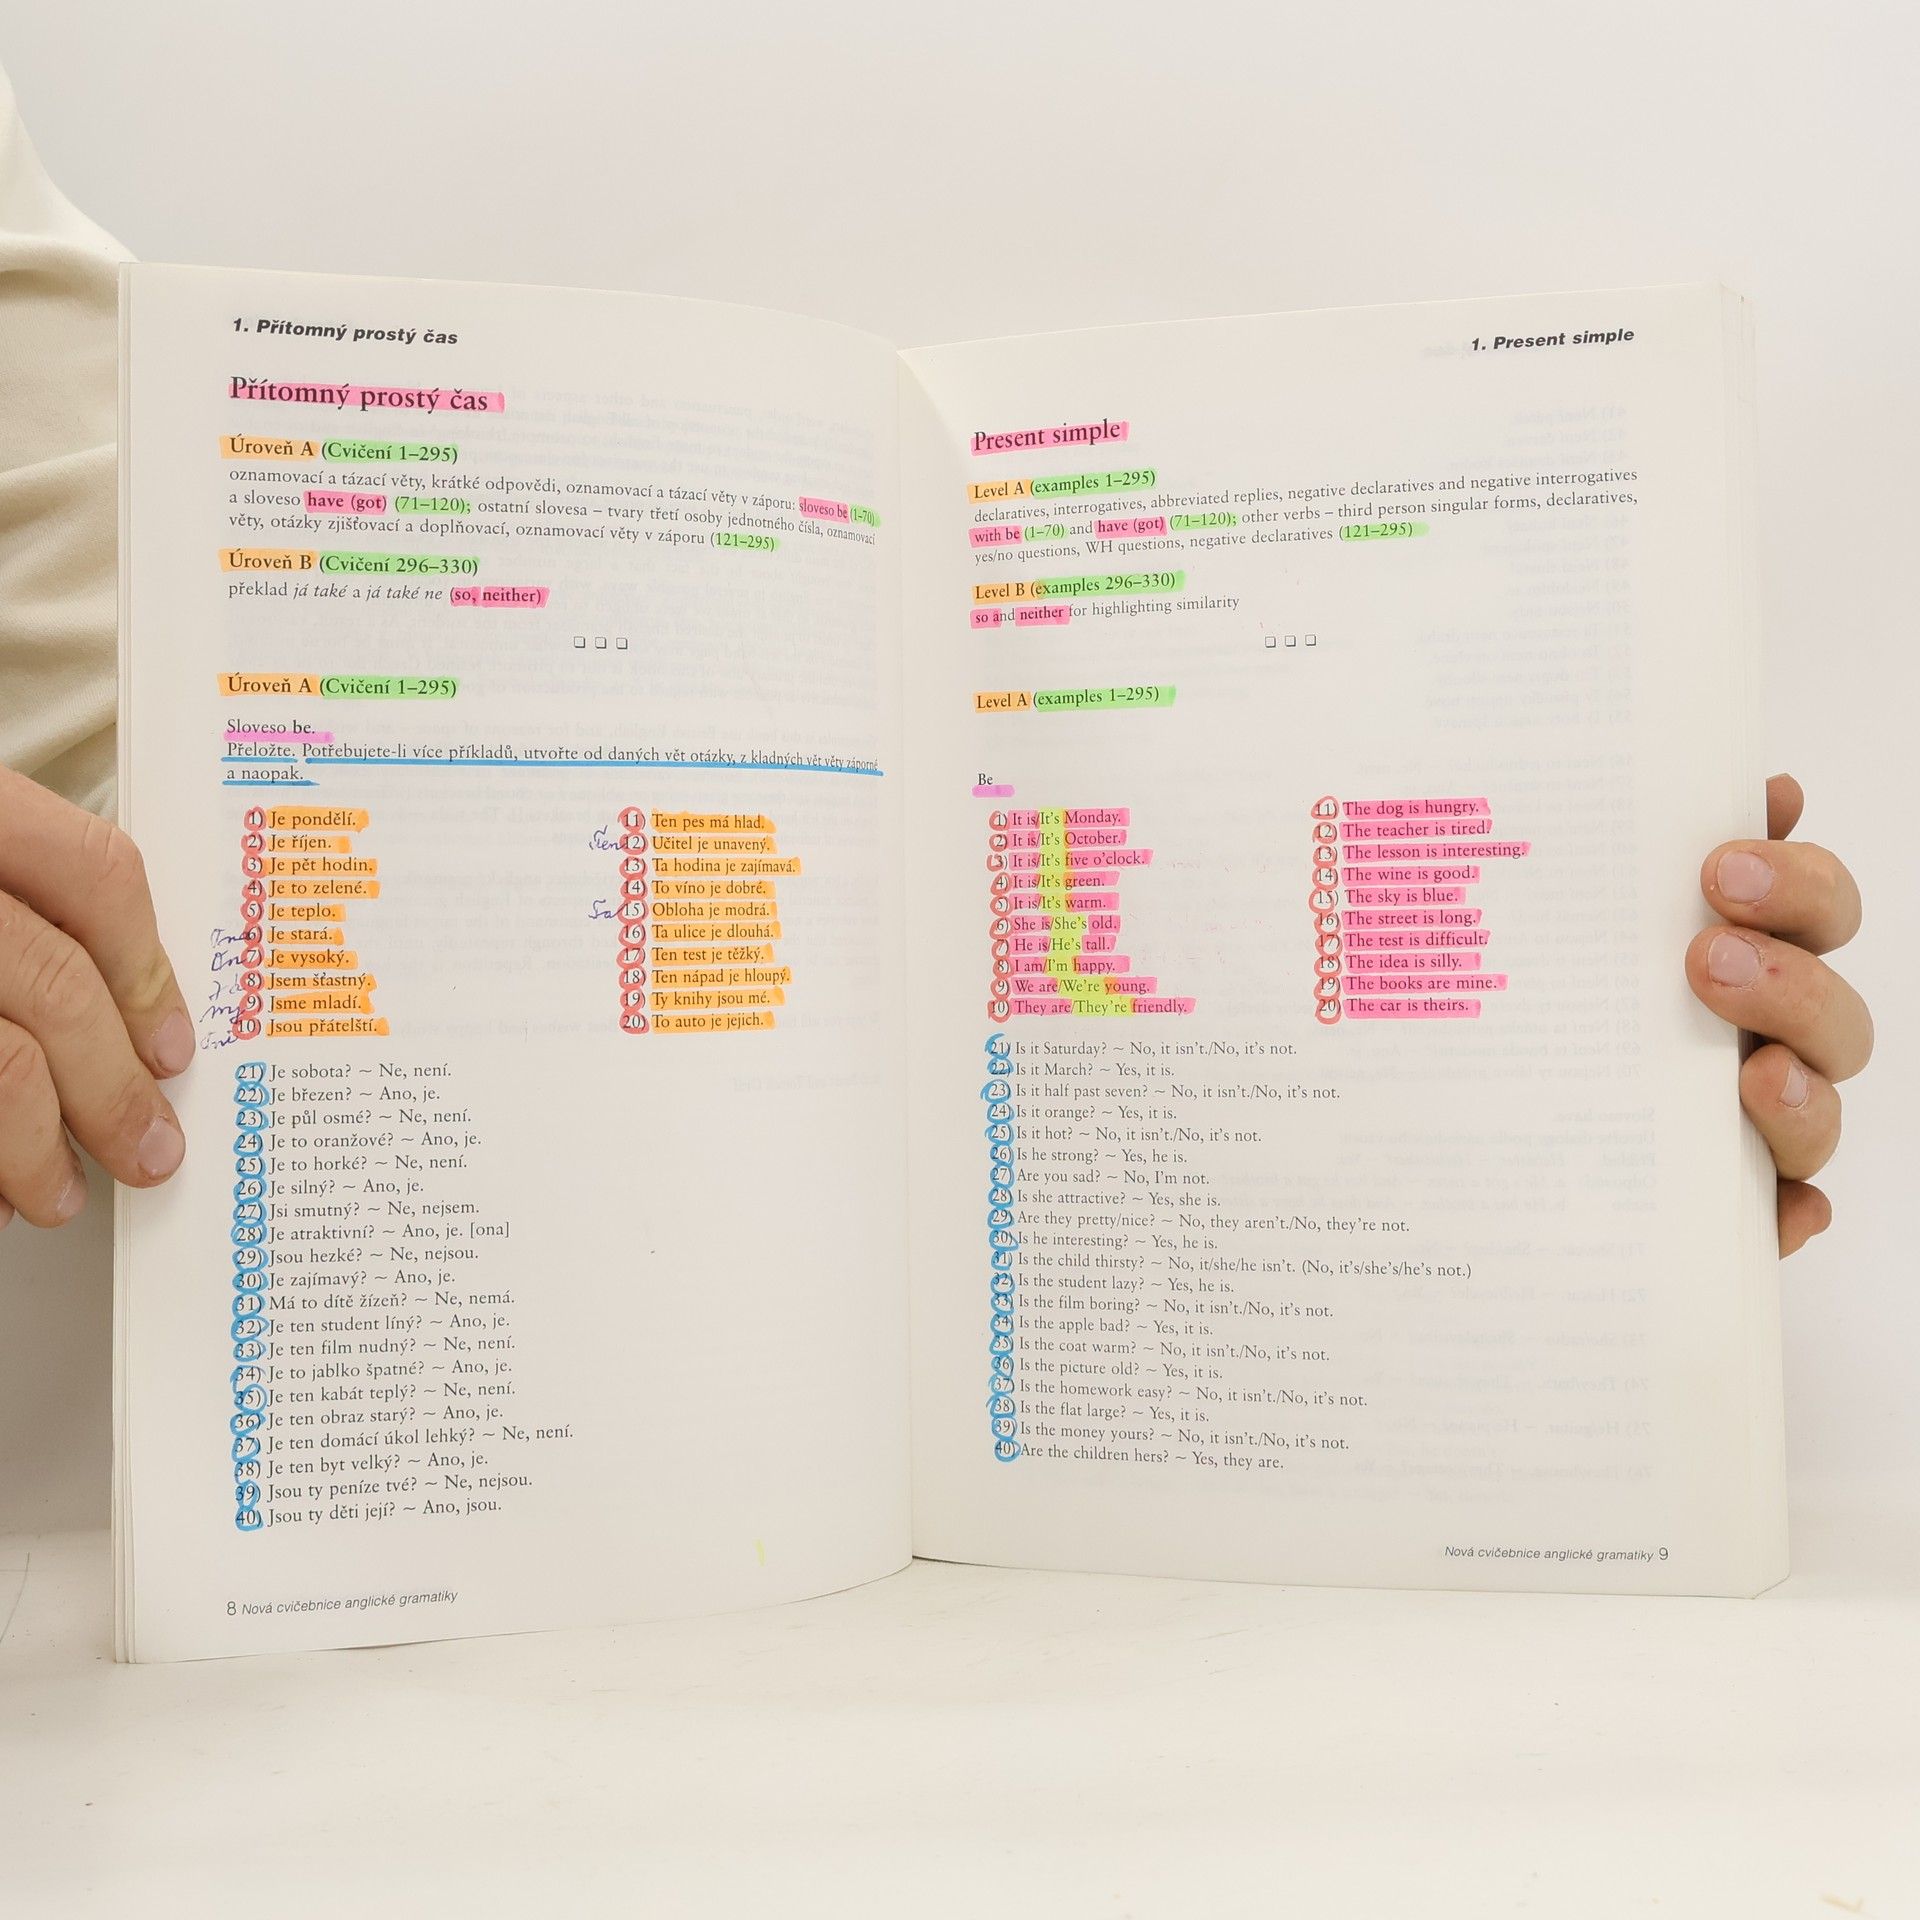 1. Přítomný prostý čas
Přítomný prostý čas
Úroveň A (Cvičení 1–295)
oznamovací a tázací věty, krátké odpovědi, oznamovací a tázací věty v záporu: sloveso be (1–70)
a sloveso have (got) (71–120); ostatní slovesa – tvary třetí osoby jednotného čísla, oznamovací
věty, otázky zjišťovací a doplňovací, oznamovací věty v záporu (121–295)
Úroveň B (Cvičení 296–330)
překlad já také a já také ne (so, neither)
Úroveň A (Cvičení 1–295)
Sloveso be.
Přeložte. Potřebujete-li více příkladů, utvořte od daných vět otázky, z kladných vět věty záporné
a naopak.
1) Je pondělí.
2) Je říjen.
3) Je pět hodin.
4) Je to zelené.
5) Je teplo.
Ona 6) Je stará.
On 7) Je vysoký.
Já 8) Jsem šťastný.
my 9) Jsme mladí.
Oni 10) Jsou přátelští.
11) Ten pes má hlad.
Ten 12) Učitel je unavený.
13) Ta hodina je zajímavá.
14) To víno je dobré.
Ta 15) Obloha je modrá.
16) Ta ulice je dlouhá.
17) Ten test je těžký.
18) Ten nápad je hloupý.
19) Ty knihy jsou mé.
20) To auto je jejich.
21) Je sobota? ~ Ne, není.
22) Je březen? ~ Ano, je.
23) Je půl osmé? ~ Ne, není.
24) Je to oranžové? ~ Ano, je.
25) Je to horké? ~ Ne, není.
26) Je silný? ~ Ano, je.
27) Jsi smutný? ~ Ne, nejsem.
28) Je atraktivní? ~ Ano, je. [ona]
29) Jsou hezké? ~ Ne, nejsou.
30) Je zajímavý? ~ Ano, je.
31) Má to dítě žízeň? ~ Ne, nemá.
32) Je ten student líný? ~ Ano, je.
33) Je ten film nudný? ~ Ne, není.
34) Je to jablko špatné? ~ Ano, je.
35) Je ten kabát teplý? ~ Ne, není.
36) Je ten obraz starý? ~ Ano, je.
37) Je ten domácí úkol lehký? ~ Ne, není.
38) Je ten byt velký? ~ Ano, je.
39) Jsou ty peníze tvé? ~ Ne, nejsou.
40) Jsou ty děti její? ~ Ano, jsou.
8 Nová cvičebnice anglické gramatiky
1. Present simple
Present simple
Level A (examples 1–295)
declaratives, interrogatives, abbreviated replies, negative declaratives and negative interrogatives
with be (1–70) and have (got) (71–120); other verbs – third person singular forms, declaratives,
yes/no questions, WH questions, negative declaratives (121–295)
Level B (examples 296–330)
so and neither for highlighting similarity
Level A (examples 1–295)
Be
1) It is/It's Monday.
2) It is/It's October.
3) It is/It's five o'clock.
4) It is/It's green.
5) It is/It's warm.
6) She is/She's old.
7) He is/He's tall.
8) I am/I'm happy.
9) We are/We're young.
10) They are/They're friendly.
11) The dog is hungry.
12) The teacher is tired.
13) The lesson is interesting.
14) The wine is good.
15) The sky is blue.
16) The street is long.
17) The test is difficult.
18) The idea is silly.
19) The books are mine.
20) The car is theirs.
21) Is it Saturday? ~ No, it isn't./No, it's not.
22) Is it March? ~ Yes, it is.
23) Is it half past seven? ~ No, it isn't./No, it's not.
24) Is it orange? ~ Yes, it is.
25) Is it hot? ~ No, it isn't./No, it's not.
26) Is he strong? ~ Yes, he is.
27) Are you sad? ~ No, I'm not.
28) Is she attractive? ~ Yes, she is.
29) Are they pretty/nice? ~ No, they aren't./No, they're not.
30) Is he interesting? ~ Yes, he is.
31) Is the child thirsty? ~ No, it/she/he isn't. (No, it's/she's/he's not.)
32) Is the student lazy? ~ Yes, he is.
33) Is the film boring? ~ No, it isn't./No, it's not.
34) Is the apple bad? ~ Yes, it is.
35) Is the coat warm? ~ No, it isn't./No, it's not.
36) Is the picture old? ~ Yes, it is.
37) Is the homework easy? ~ No, it isn't./No, it's not.
38) Is the flat large? ~ Yes, it is.
39) Is the money yours? ~ No, it isn't./No, it's not.
40) Are the children hers? ~ Yes, they are.
Nová cvičebnice anglické gramatiky 9